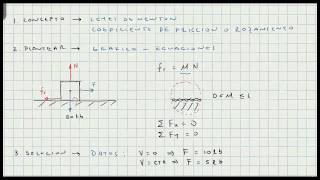 1. CONCEPTO → LEYES DE NEWTON
COEFICIENTE DE FRICCION O ROZAMIENTO
2. PLANTEAR → GRAFICO - ECUACIONES
fr = μ N
N
fr
F
20 lb
Σ Fx = 0
Σ Fy = 0
3. SOLUCION → DATOS: V = 0 ⇒ F = 10 lb
V = CTE ⇒ F = 5 lb